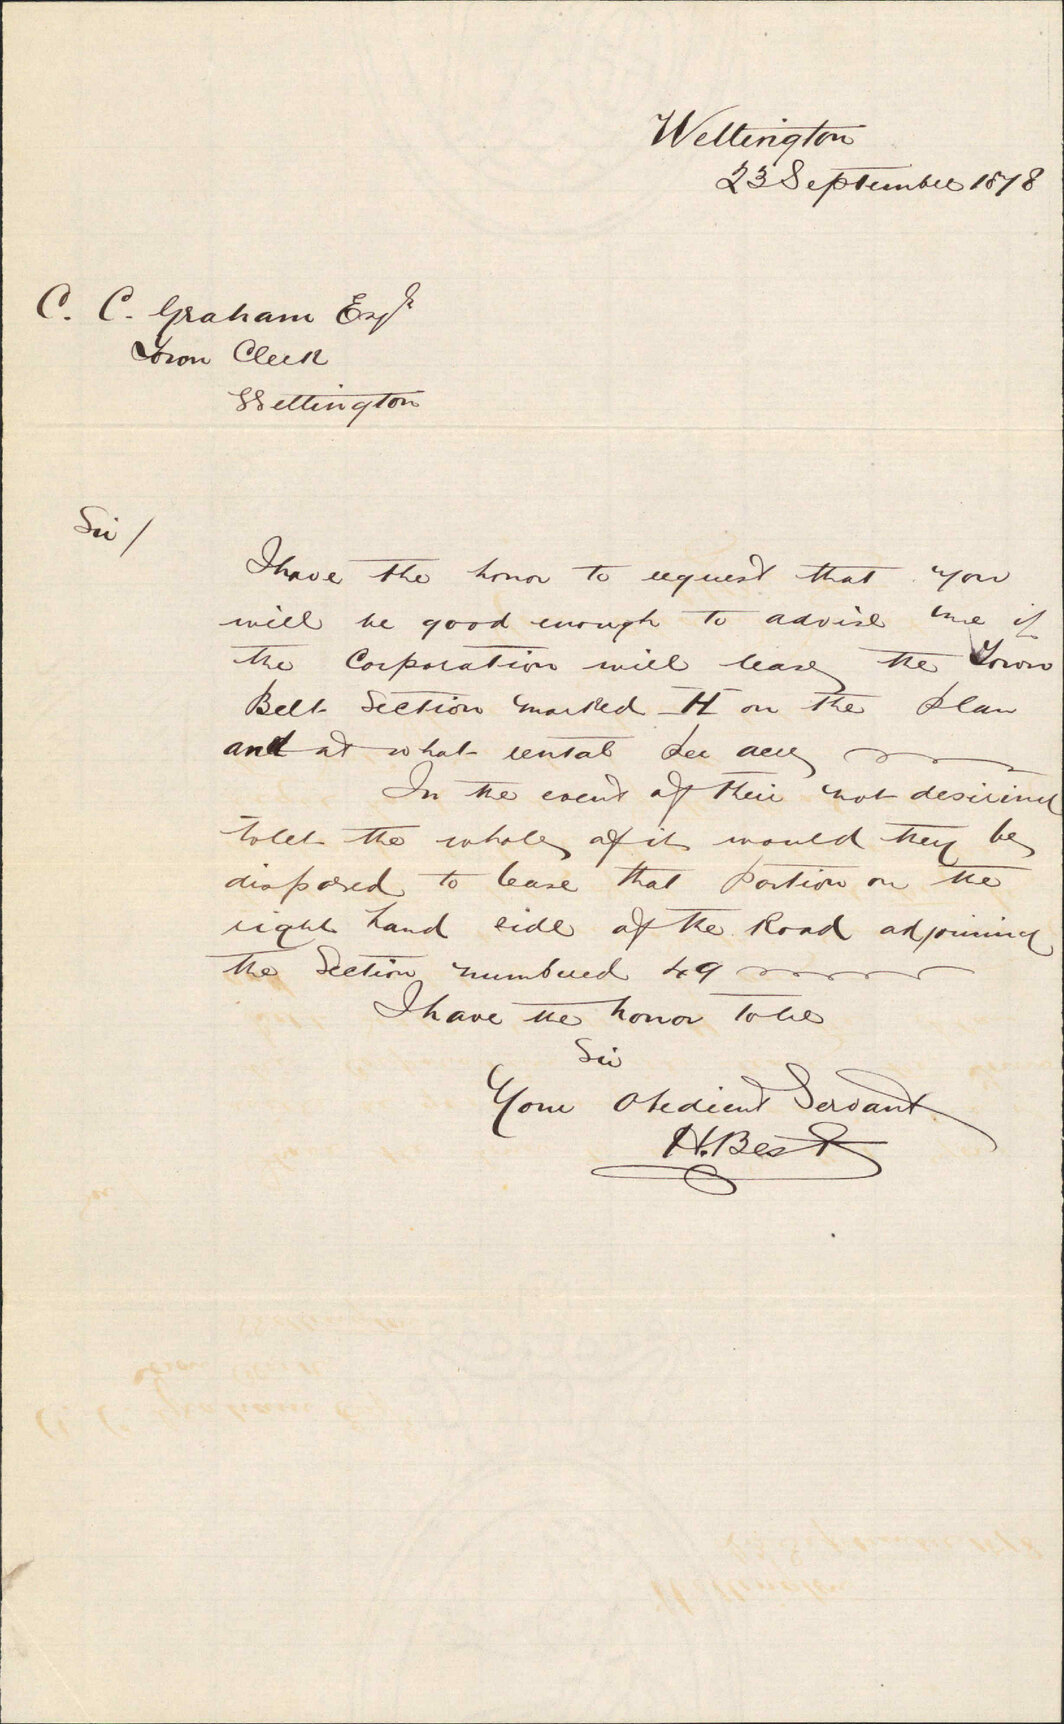 Wellington
23 September 1878
C. C. Graham Esqr
Town Clerk
Wellington
Sir /
I have the honor to request that you
will be good enough to advise me if
the Corporation will lease the Town
Belt Section marked H on the plan
and at what rental per acre
In the event of their not desiring
to let the whole of it would they be
disposed to lease that portion on the
right hand side of the Road adjoining
the Section numbered 49
I have the honor to be
Sir
Your Obedient Servant
H. Best